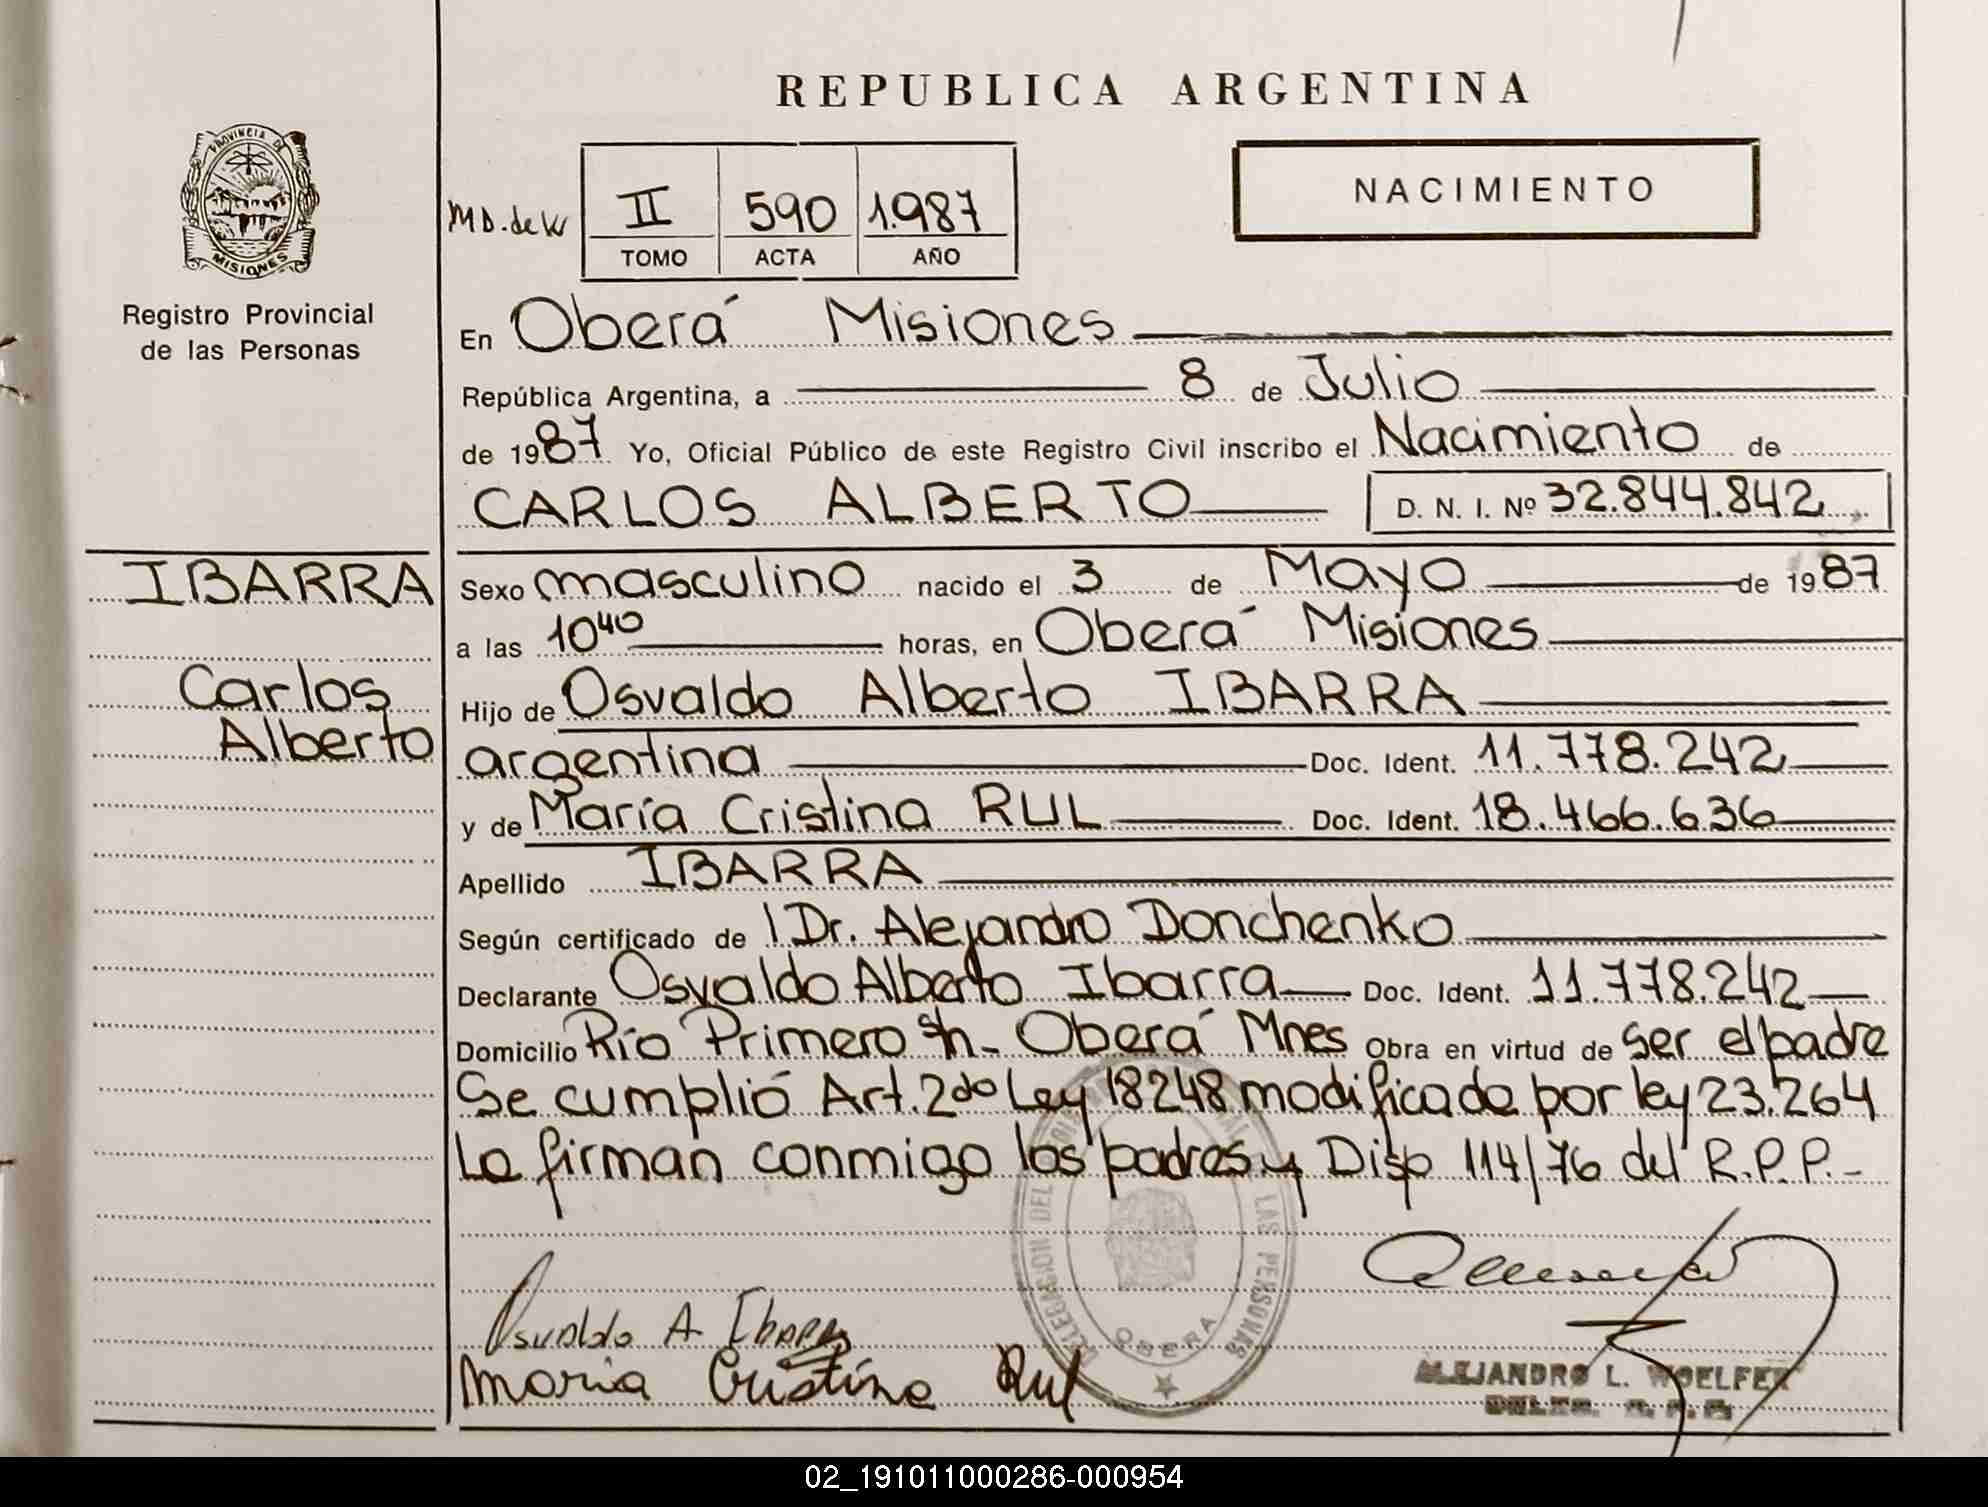 REPUBLICA ARGENTINA
PROVINCIA DE
MISIONES
Registro Provincial
de las Personas
MD. de W
II 590 1.987
TOMO ACTA AÑO
NACIMIENTO
En Oberá Misiones
República Argentina, a 8 de Julio
de 1987 Yo, Oficial Público de este Registro Civil inscribo el Nacimiento de
CARLOS ALBERTO D. N. I. Nº 32.844.842
IBARRA
Carlos
Alberto
Sexo masculino nacido el 3 de Mayo de 1987
a las 10⁴⁰ horas, en Oberá Misiones
Hijo de Osvaldo Alberto IBARRA
argentina Doc. Ident. 11.778.242
y de María Cristina RUL Doc. Ident. 18.466.636
Apellido IBARRA
Según certificado de Dr. Alejandro Donchenko
Declarante Osvaldo Alberto Ibarra Doc. Ident. 11.778.242
Domicilio Río Primero s/n - Oberá Mnes Obra en virtud de ser el padre
Se cumplió Art. 2do Ley 18248 modificada por ley 23.264
La firman conmigo los padres y Disp 114/76 del R.P.P.-
DELEGACION DEL LAS PERSONAS
OBERA
Osvaldo A. Ibarra
Maria Cristina Rul
ALEJANDRO L. WOELFER
02_191011000286-000954